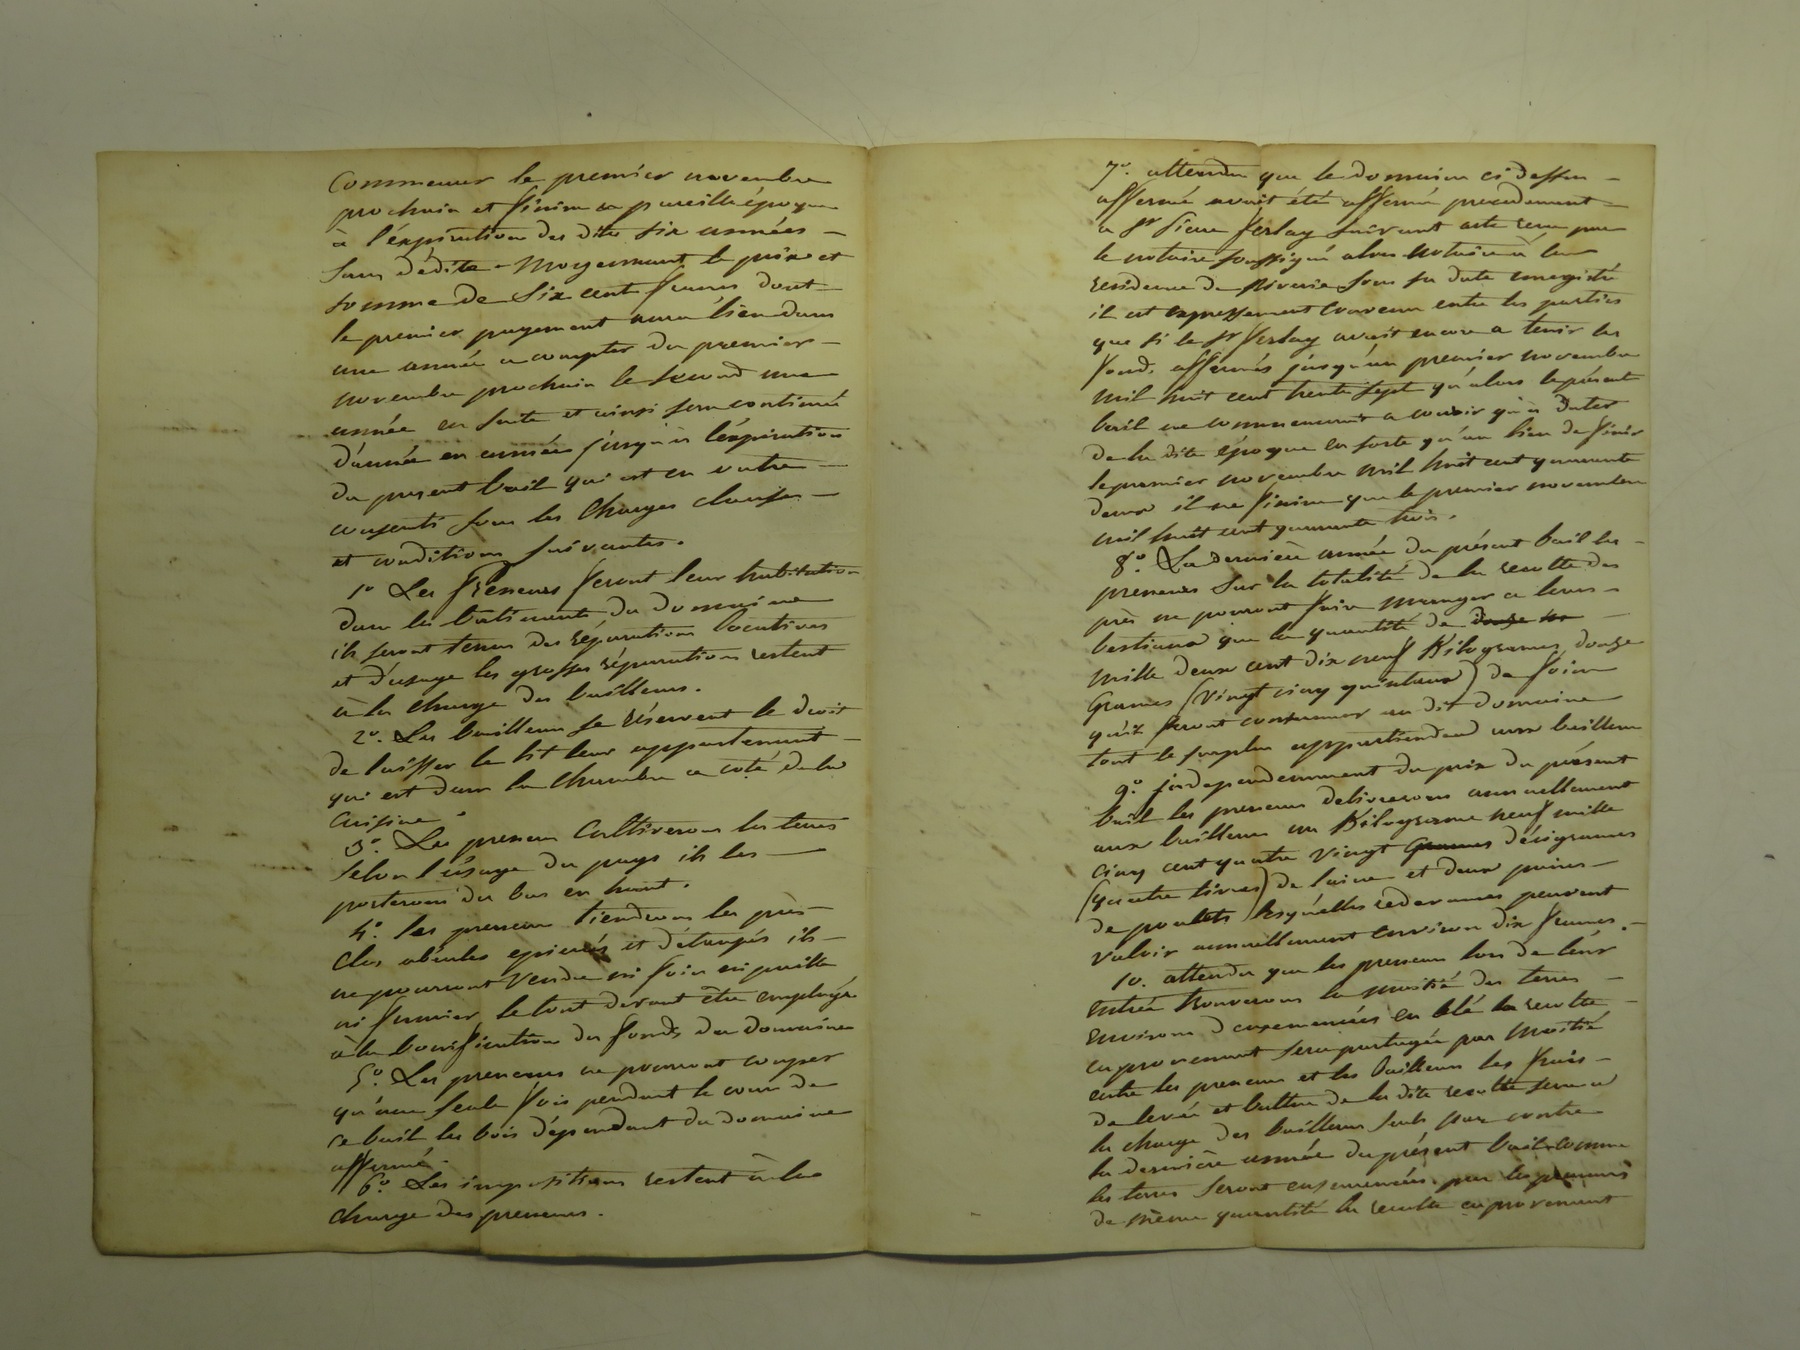 Commencer le premier novembre
prochain et finira a pareille époque
à l'éxpiration des dites six années –
sans dédite – Moyennant le prix et
somme de Six cent francs dont
le premier payement aura lieu dans
une année a compter du premier –
novembre prochain le second une
année en suite et ainsi sera continué
d'année en année jusqu'à l'éxpiration
du present bail qui est en outre –
consenti sous les Charges clauses –
et conditions suivantes.
1º Les Preneurs feront leur habitation
dans les batiments du domaine
ils seront tenus des réparations locatives
et d'usage les grosses réparations restent
à la charge des bailleurs.
2º. Les bailleurs se réservent le droit
de laisser le lit leur appartenant –
qui est dans la chambre a coté de la
cuisine
3º. Les preneurs cultiveront les terres
selon l'usage du pays ils les –
porteront du bas en haut.
4º. les preneurs tiendront les près –
clos abeulés epierrés et détaupés ils –
ne pourront vendre ni foin ni paille
ni fumier, le tout devant être employé
à la bonification du fonds du domaine
5º. Les preneurs ne pourront couper
qu'une seule fois pendant le cours de
ce bail les bois dépendant du domaine
affermé.
6º. Les impositions restent à la
charge des preneurs.
7º. attendu que le domaine ci dessus –
affermé avait été affermé précedement –
a Sr Ferlay suivant acte recu par
le notaire soussigné alors notaire à la
residence de Riverie sous sa date enregistré
il est expressement convenu entre les parties
que si le Sr Ferlay avait encore a tenir les
fonds affermés jusqu'au premier novembre
mil huit cent trente sept qu'alors le présent
bail ne commencerait a courir qu'a dater
de la dite époque en sorte qu'au lieu de finir
le premier novembre mil huit cent quarante
deux il ne finira que le premier novembre
mil huit cent quarante trois.
8º. La dernière année du présent bail les –
preneurs sur la totalité de la recolte des
près ne pourront faire manger a leurs –
bestiaux que la quantité de douze
mille deux cent dix neuf Kilogrames, douze
Grames (Vingt cinq quintaux) de foin
qu'ils feront consumer au dit domaine
tout le surplus appartiendra aux bailleurs
9º. Independemment du prix du présent
bail les preneurs delivreront annuellement
aux bailleurs un Kilograme neuf mille
cinq cent quatre vingt Grames décigrames
(quatre livres) de laine et deux paires –
de poulets lesquelles redevances peuvent
valoir annuellement environ dix francs. –
10. attendu que les preneurs lors de leur
entrée trouveront la moitié des terres –
environ d'ensemencées en blé la recolte –
en provenant sera partagée par moitié
entre les preneurs et les bailleurs les frais –
de levée et batture de la dite recolte seront a
la charge des bailleurs seuls par contre
la dernière année du présent bail comme
les terres seront ensemencées par les preneurs
de même quantité la recolte en provenant